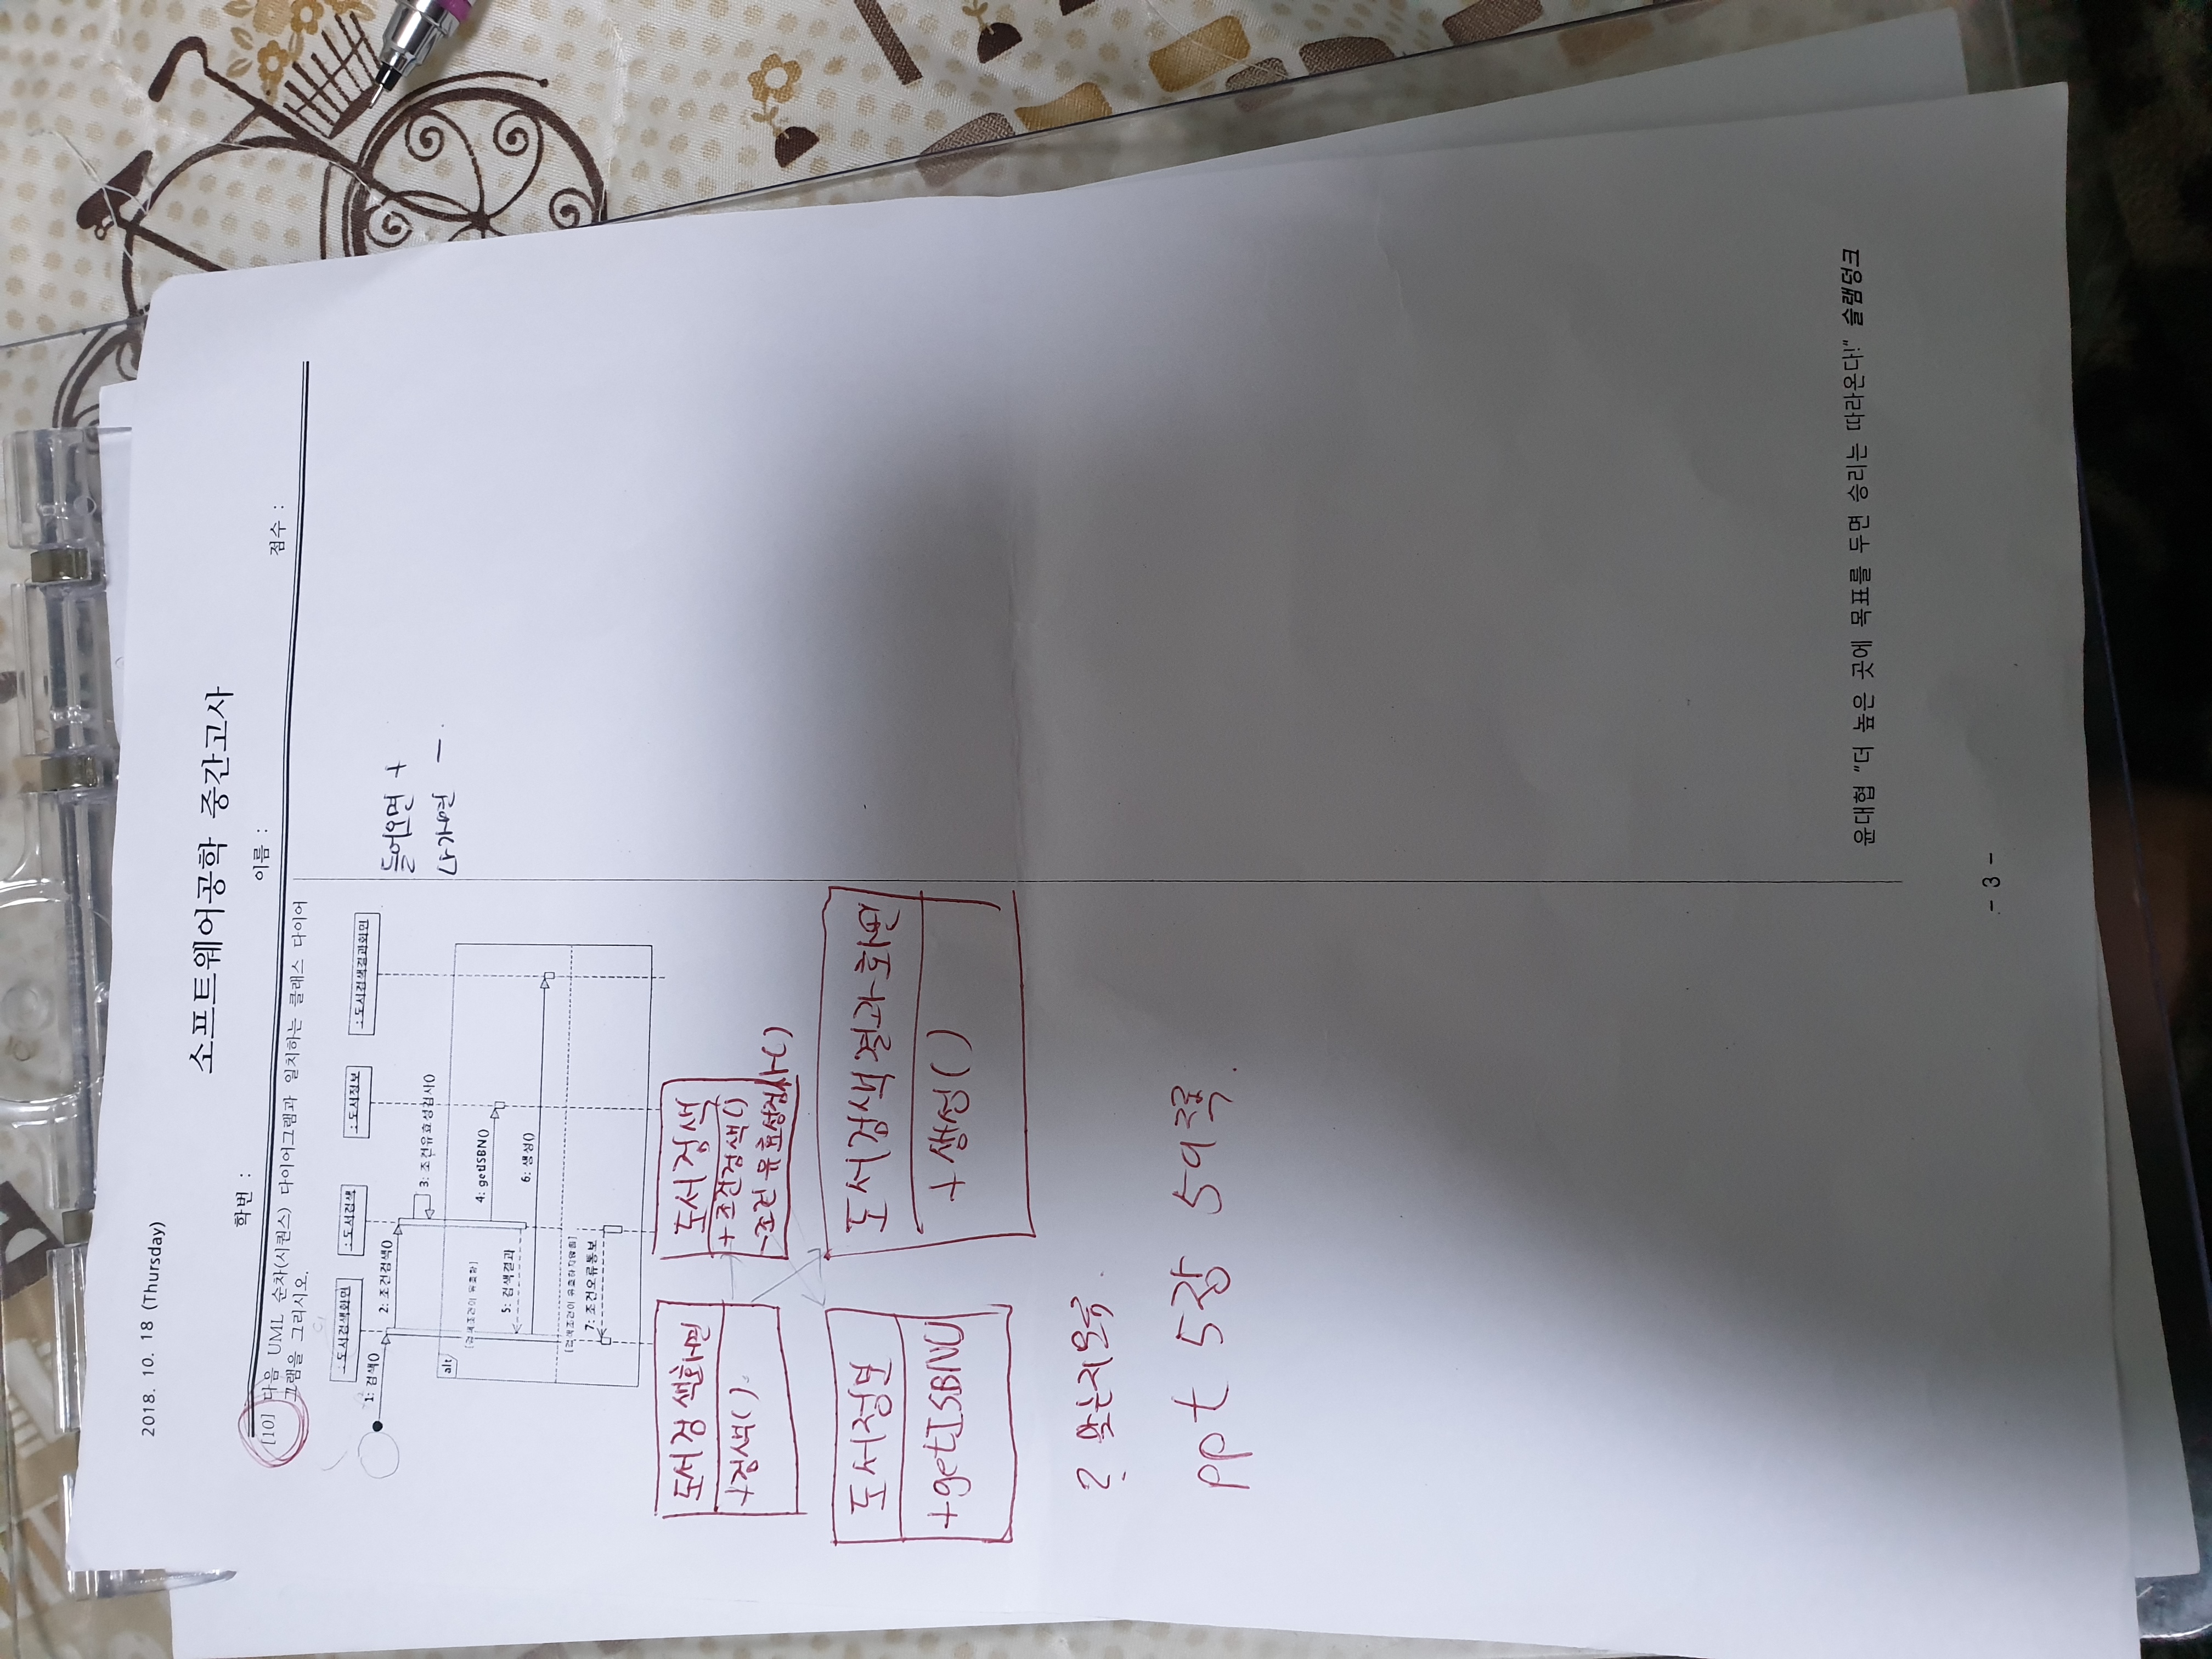 2018. 10. 18 (Thursday)
소프트웨어공학 중간고사
학번 :
이름 :
점수 :
[10] 다음 UML 순차(시퀀스) 다이어그램과 일치하는 클래스 다이어
그램을 그리시오.
: 도서검색화면
: 도서검색
: 도서정보
: 도서검색결과화면
1: 검색()
2: 조건검색()
3: 조건유효성검사()
alt
[검색조건이 유효함]
4: getISBN()
5: 검색결과
6: 생성()
[검색조건이 유효하지않음]
7: 조건오류통보
들어오면 +
나가면 -
도서검색화면
+검색()
도서검색
+조건검색()
-조건유효성검사()
도서정보
+getISBN()
도서검색결과화면
+생성()
? 맞는지모름.
ppt 5장 59쪽.
윤대협 "더 높은 곳에 목표를 두면 승리는 따라온다!" 슬램덩크
- 3 -